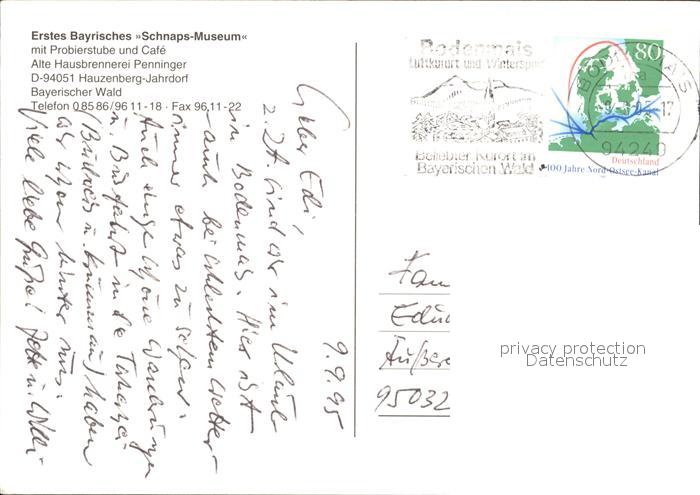 Erstes Bayrisches »Schnaps-Museum«
mit Probierstube und Café
Alte Hausbrennerei Penninger
D-94051 Hauzenberg-Jahrdorf
Bayerischer Wald
Telefon 0 85 86/96 11-18 · Fax 96 11-22
Bodenmais
Luftkurort und Wintersport
Beliebter Kurort im
Bayerischen Wald
BODENMAIS
94249
80
Deutschland
100 Jahre Nord-Ostsee-Kanal
9.9.95
Lieber Edi,
z. Zt. sind wir im Urlaub
in Bodenmais. Hier ist
auch bei schlechtem Wetter
immer etwas zu sehen.
Auch einige schöne Wanderungen
u. Busfahrt in die
haben
wir schon hinter uns.
Viele liebe Grüße! u. Willi
Edu
Äußere
95032
privacy protection
Datenschutz